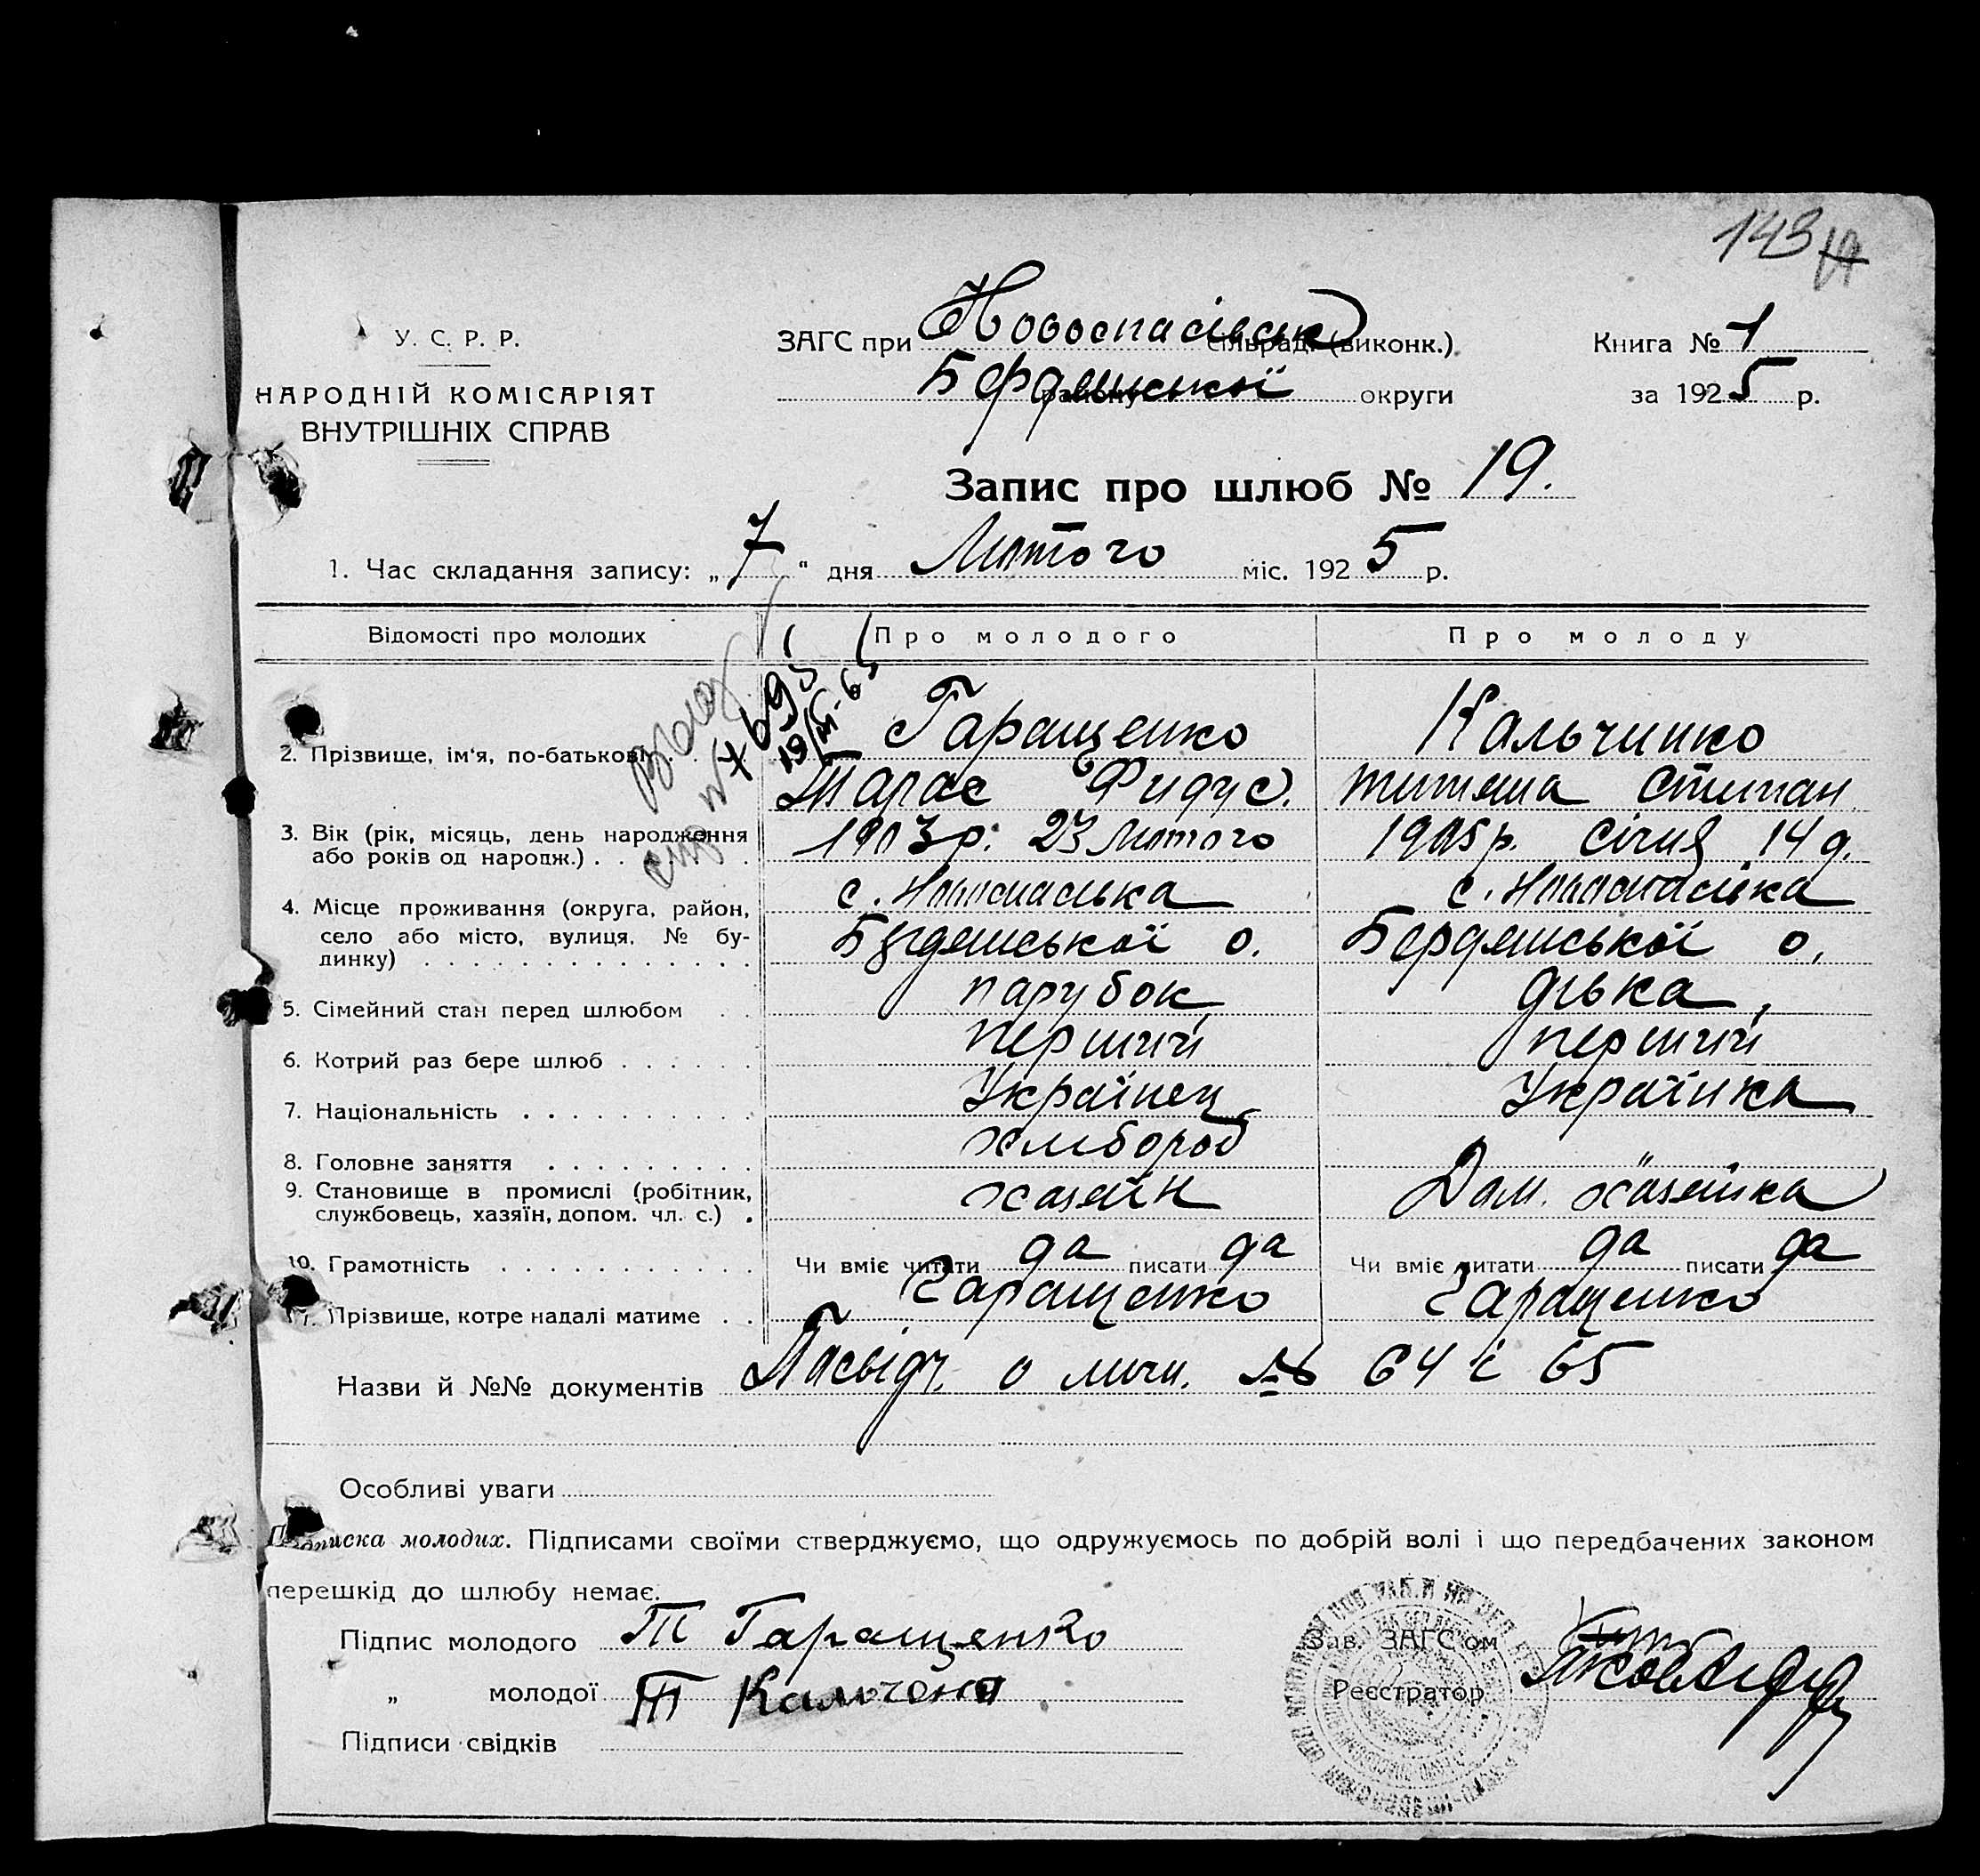 143
У. С. Р. Р.
НАРОДНІЙ КОМІСАРІЯТ
ВНУТРІШНІХ СПРАВ
ЗАГС при Новоспасівськ сільраді (виконк.)
Бердянської району округи
Книга № 1
за 1925 р.
Запис про шлюб № 19.
1. Час складання запису: „7“ дня Лютого міс. 1925 р.
Відомості про молодих
Про молодого
Про молоду
2. Прізвище, ім'я, по-батькові
Гаращенко
Тарас Фидус.
Кальчинко
Титяна Стипан
3. Вік (рік, місяць, день народження
або років од народж.)
1903р. 23 Лютого
1905р. Січня 14 д.
4. Місце проживання (округа, район,
село або місто, вулиця, № бу-
динку)
с. Новоспаська
Бердянської о.
с. Новоспасівка
Бердянської о.
5. Сімейний стан перед шлюбом
парубок
дівка
6. Котрий раз бере шлюб
перший
перший
7. Національність
Українец
Українка
8. Головне заняття
хлібороб
9. Становище в промислі (робітник,
службовець, хазяїн, допом. чл. с.)
хазяїн
Дом. хазяйка
10. Грамотність
Чи вміє читати да писати да
Чи вміє читати да писати да
11. Прізвище, котре надалі матиме
Гаращенко
Гаращенко
Назви й №№ документів Посвідч. о личн. № 64 і 65
Особливі уваги
Підписка молодих. Підписами своїми стверджуємо, що одружуємось по добрій волі і що передбачених законом
перешкід до шлюбу немає.
Підпис молодого Т Гаращенко
„ молодої Т Кальченко
Підписи свідків
Зав. ЗАГС'ом
Реєстратор